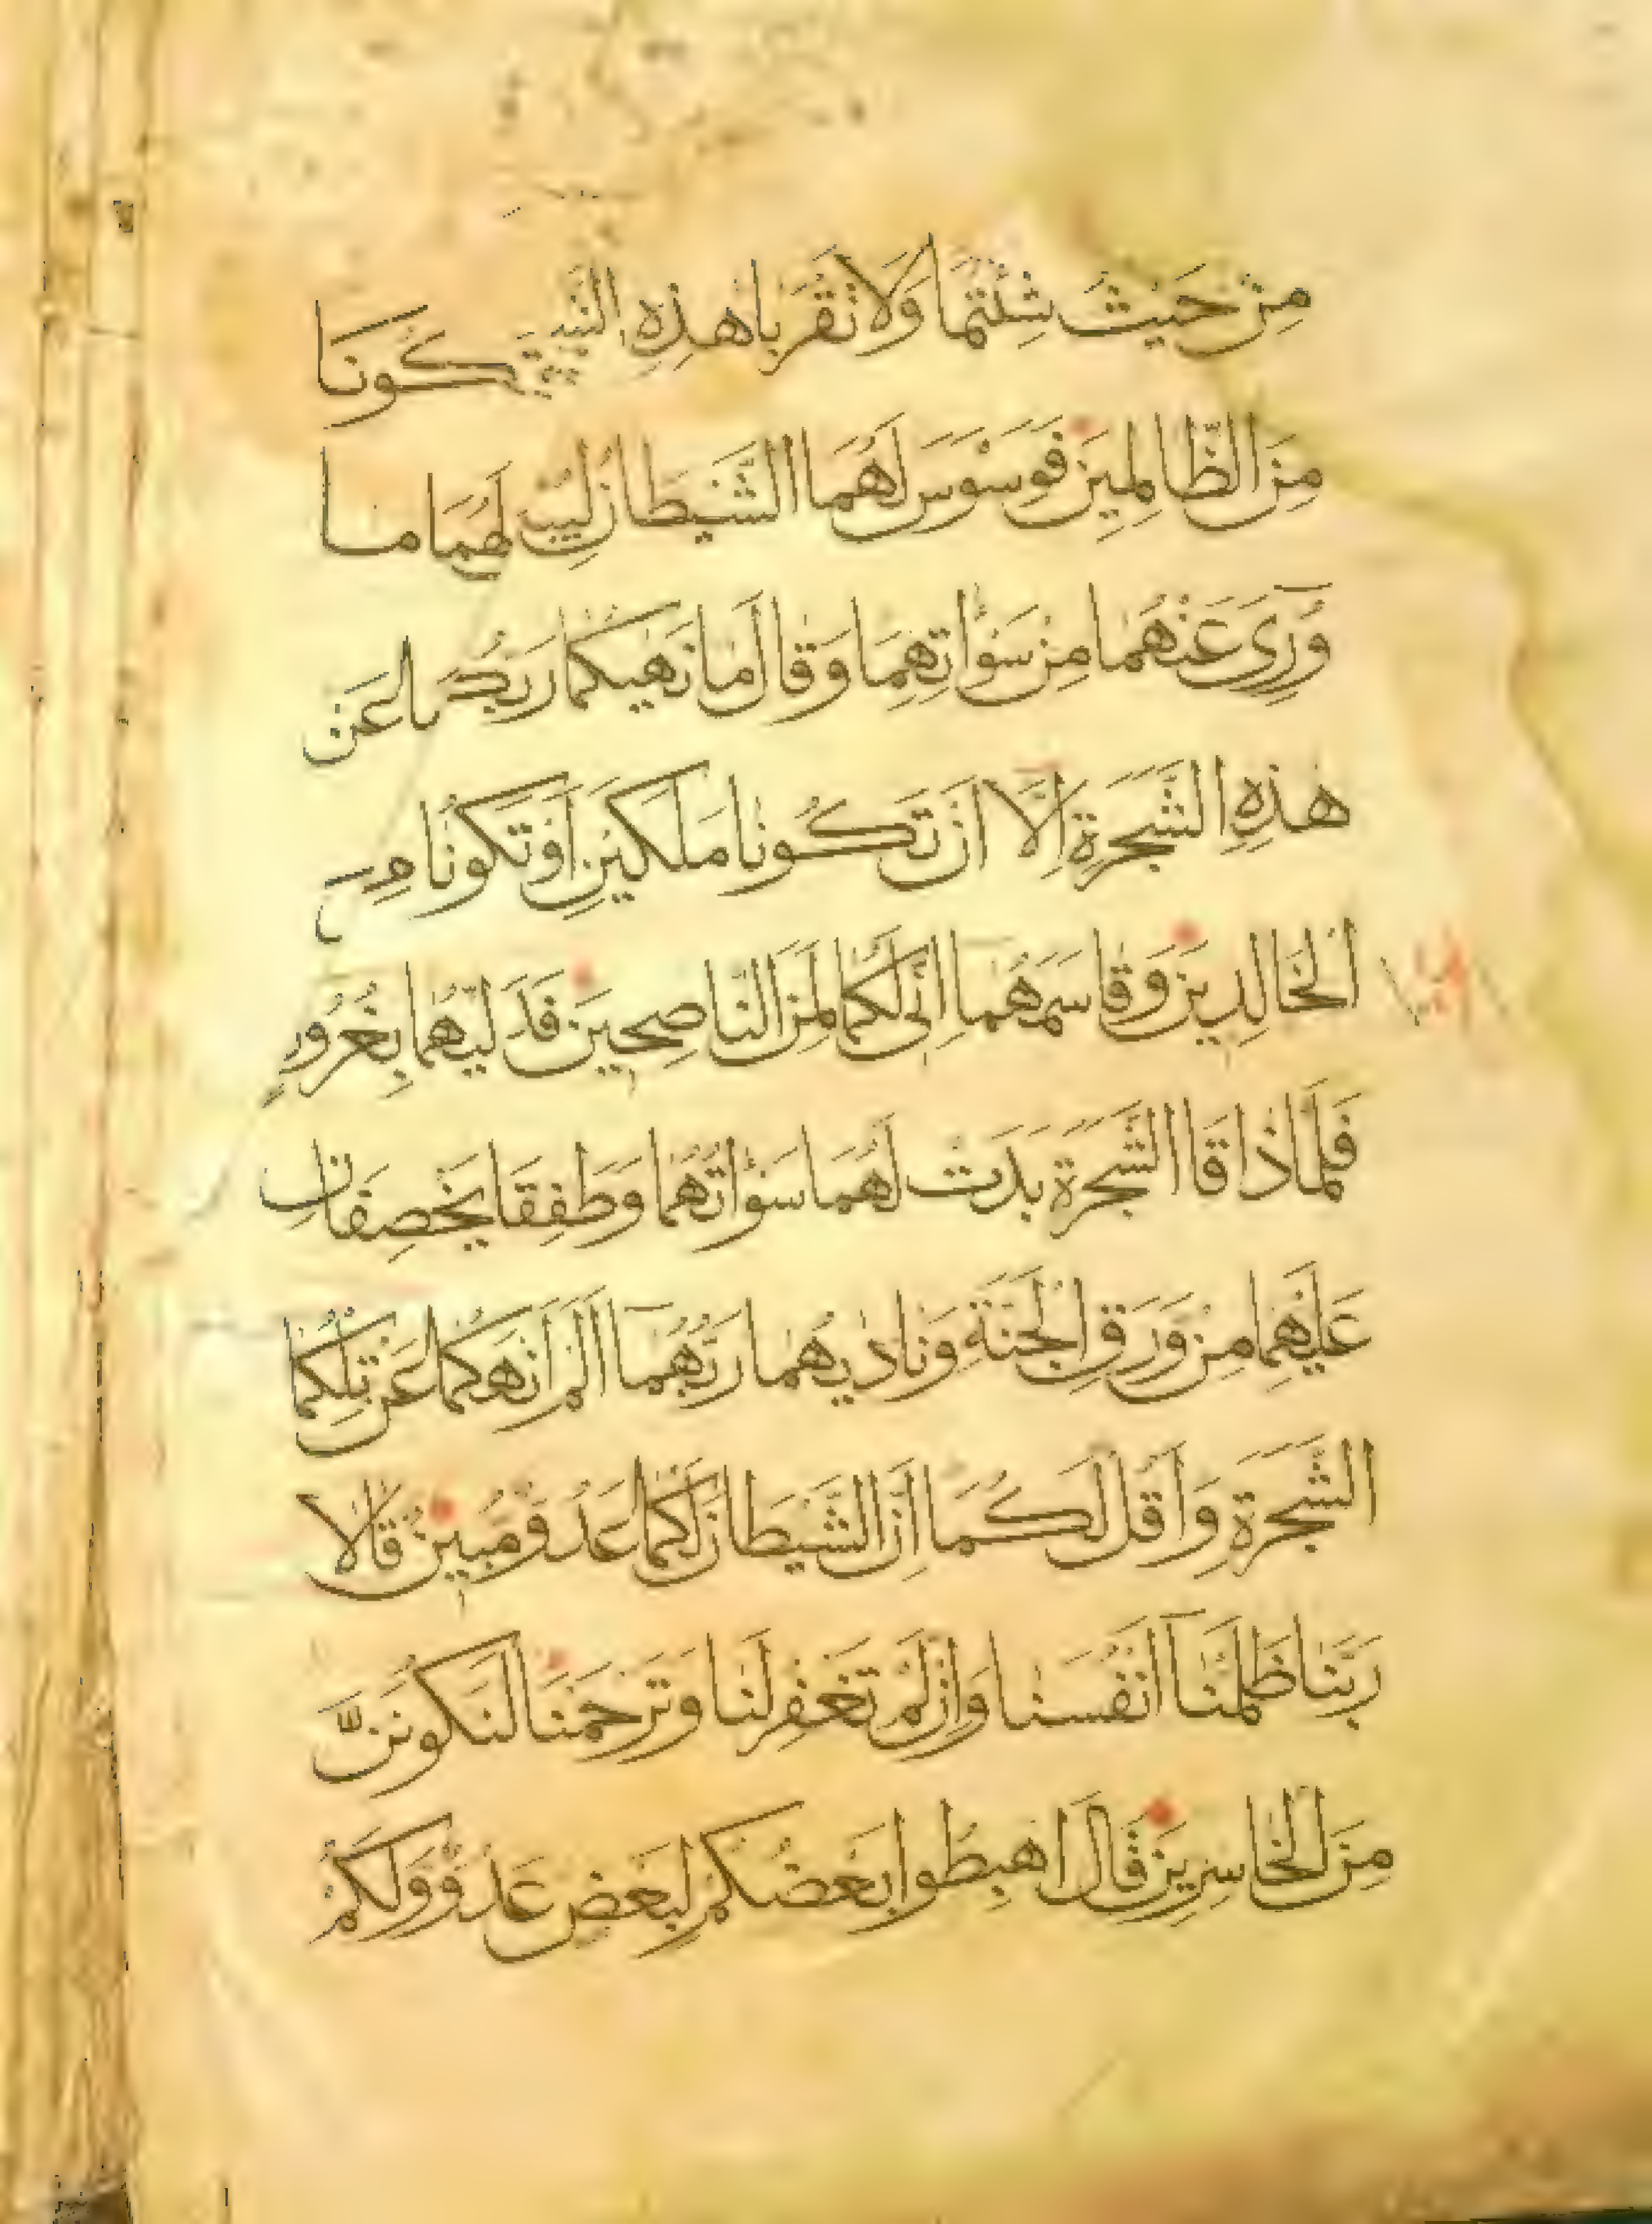 مِنْ حَيْثُ شِئْتُمَا وَلَا تَقْرَبَا هٰذِهِ كُونَا
مِنَ الظَّالِمِينَ فَوَسْوَسَ لَهُمَا الشَّيْطَانُ لَهُمَا مَا
وُرِيَ عَنْهُمَا مِنْ سَوْاٰتِهِمَا وَقَالَ مَا نَهٰيكُمَا رَبُّكُمَا عَنْ
هٰذِهِ الشَّجَرَةِ اِلَّا اَنْ تَكُونَا مَلَكَيْنِ اَوْ تَكُونَا مِنَ
الْخَالِدِينَ وَقَاسَمَهُمَا اِنِّى لَكُمَا لَمِنَ النَّاصِحِينَ فَدَلّٰيهُمَا بِغُرُورٍ
فَلَمَّا ذَاقَا الشَّجَرَةَ بَدَتْ لَهُمَا سَوْاٰتُهُمَا وَطَفِقَا يَخْصِفَانِ
عَلَيْهِمَا مِنْ وَرَقِ الْجَنَّةِ وَنَادٰيهُمَا رَبُّهُمَا اَلَمْ اَنْهَكُمَا عَنْ تِلْكُمَا
الشَّجَرَةِ وَاَقُلْ لَكُمَا اِنَّ الشَّيْطَانَ لَكُمَا عَدُوٌّ مُبِينٌ قَالَا
رَبَّنَا ظَلَمْنَا اَنْفُسَنَا وَاِنْ لَمْ تَغْفِرْ لَنَا وَتَرْحَمْنَا لَنَكُونَنَّ
مِنَ الْخَاسِرِينَ قَالَ اهْبِطُوا بَعْضُكُمْ لِبَعْضٍ عَدُوٌّ وَلَكُمْ